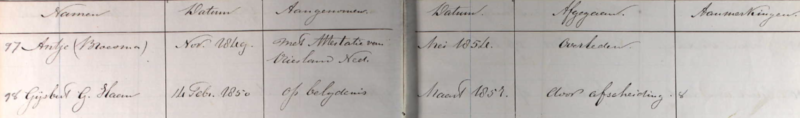 Namen Datum Aangenomen. Datum. Afgegaan. Aanmerkingen.
97 Antje ( Nov. 1849. met Attestatie van Mei 1854. Overleden
Vriesland Ned.
98 Gijsbert G. Haan 14 Febr. 1850 op belydenis Maart 1857. door afscheiding.